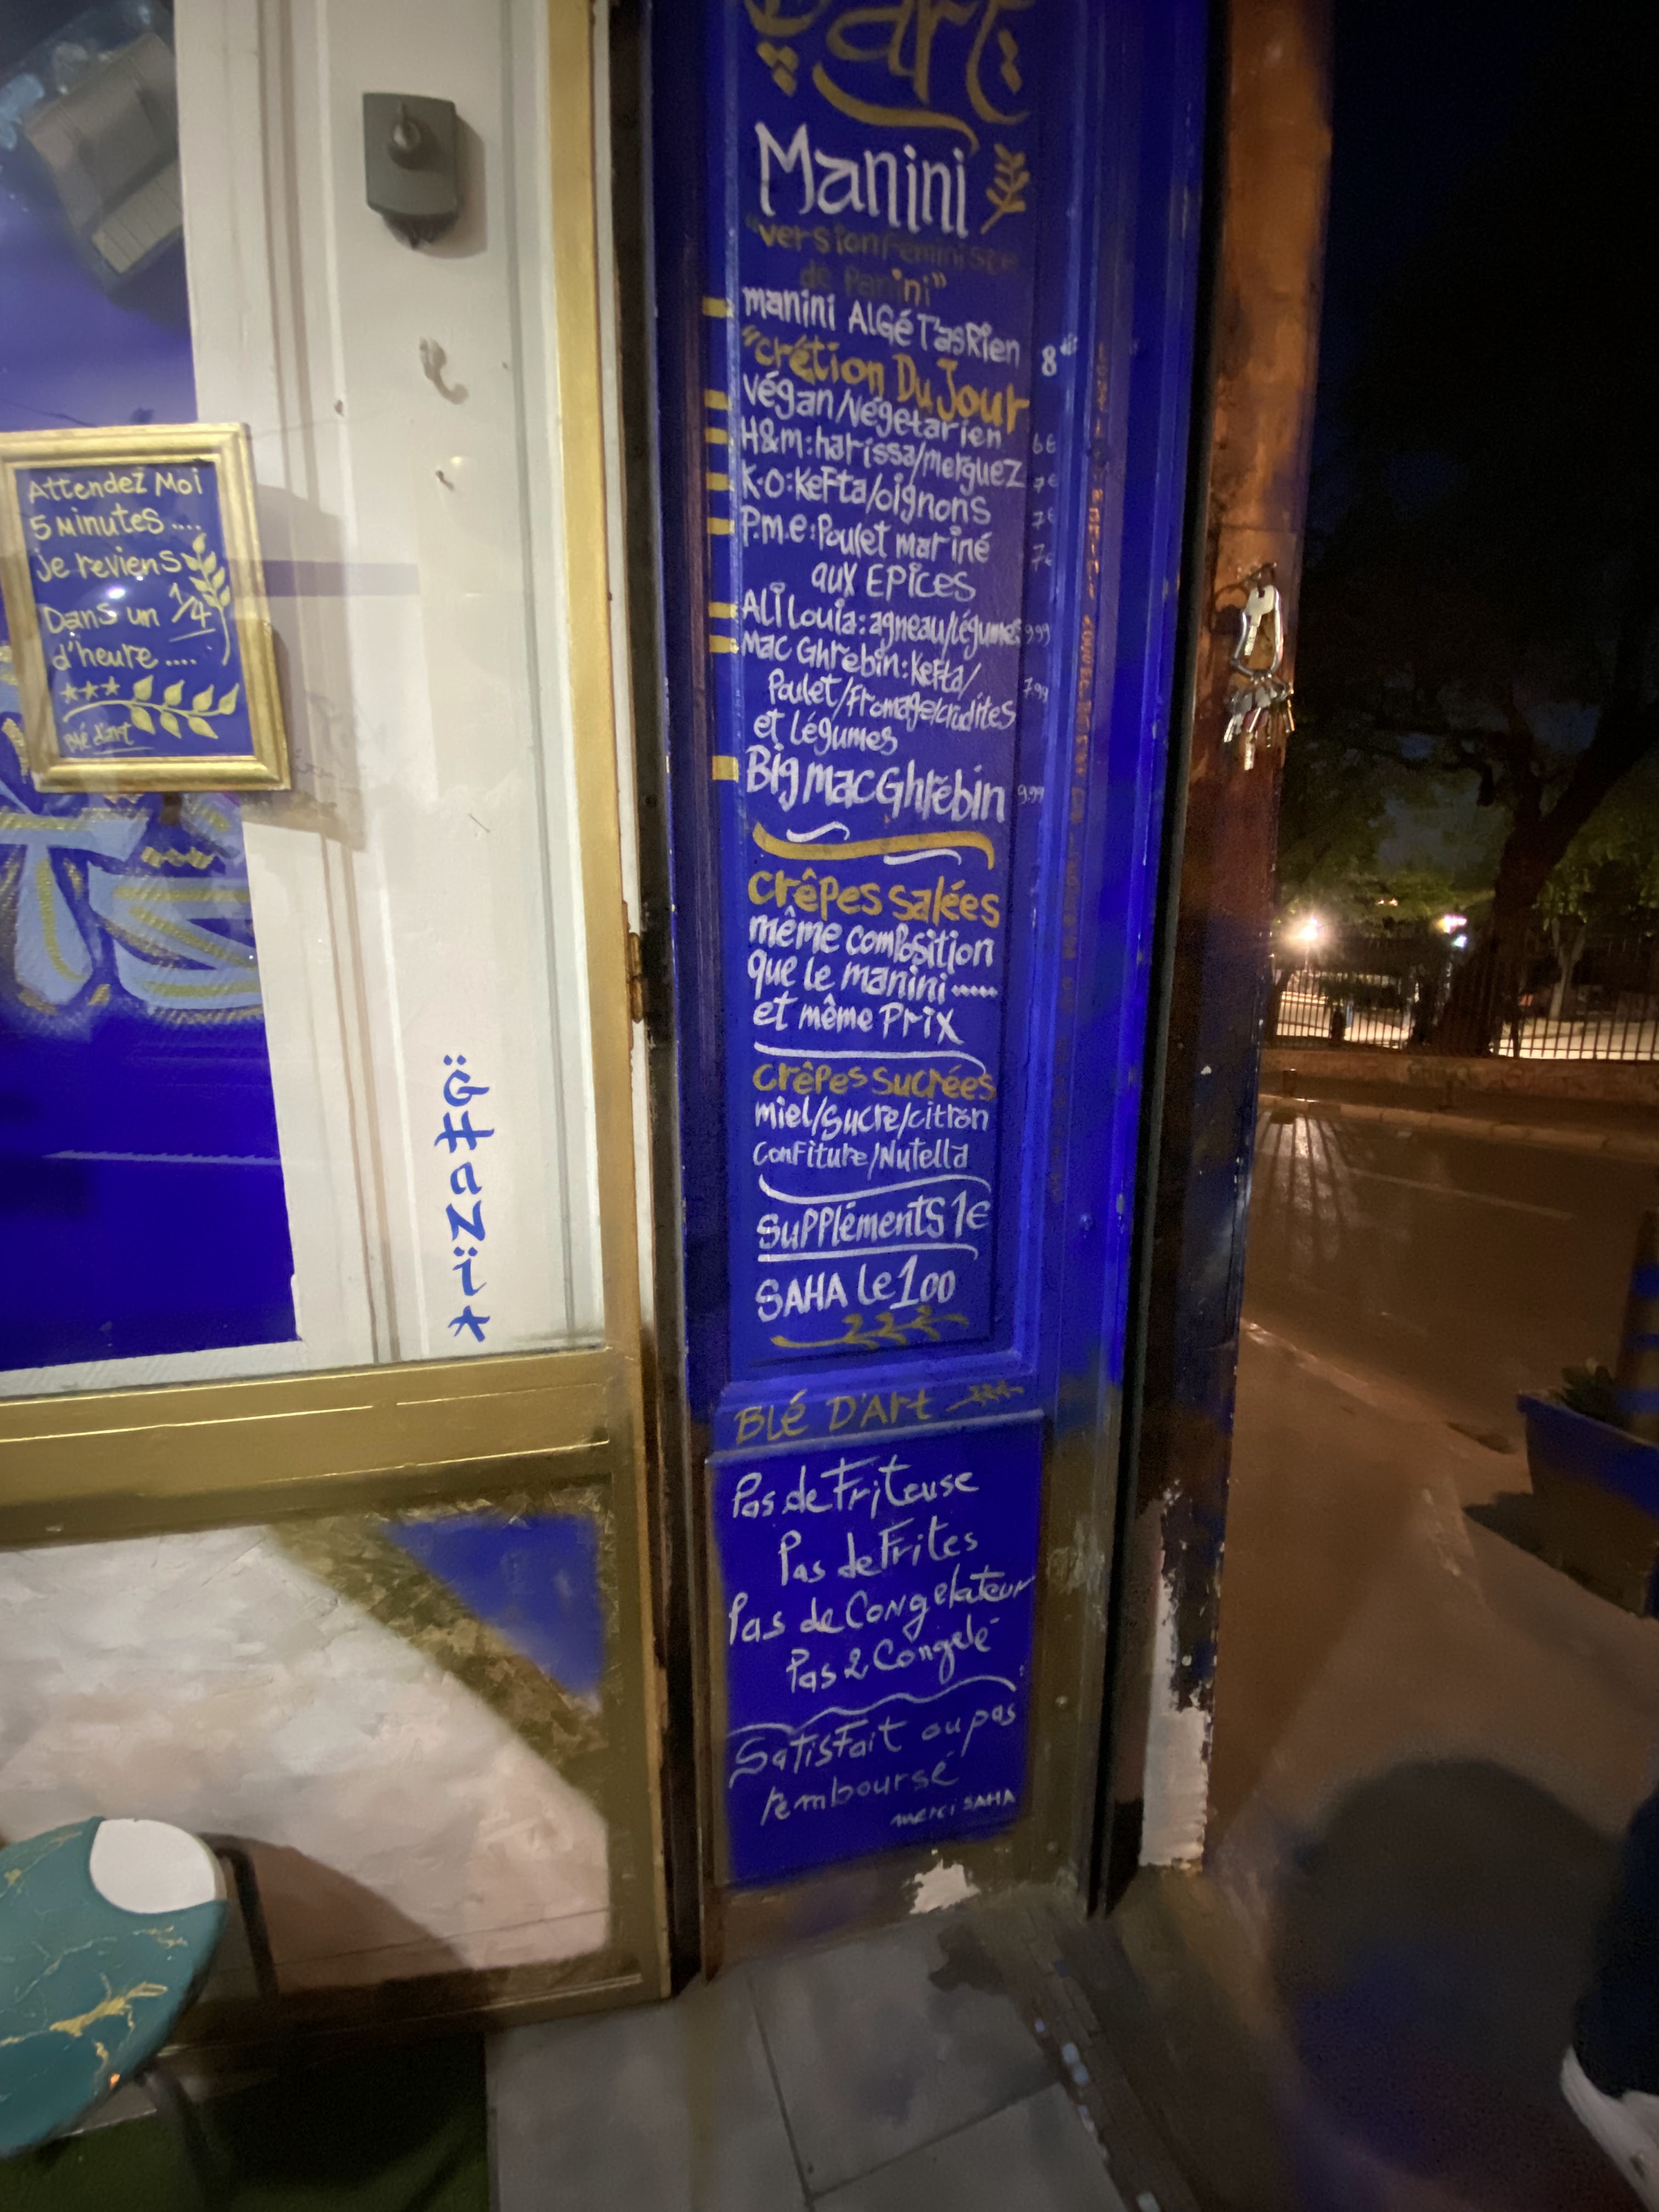 Attendez Moi
5 Minutes ....
je reviens
Dans un 1/4
d'heure ....
Blé d'art
GHaNiA
D'art
Manini
"version Féministe
de Panini"
manini AlGéT'asRien 8
"crétion Du Jour
végan/végétarien 6€
H&m:harissa/merguez 7€
K.O:KeFta/oignons 7€
P.m.e:Poulet mariné 7€
aux EPices
ALi Louia:agneau/légumes 9.99
Mac Ghrebin:KeFta/
Poulet/Fromage/crudites 7.99
et Légumes
Big macGhrebin 9.99
crêpes salées
même composition
que le manini ......
et même Prix
crêpes Sucrées
miel/Sucre/citron
confiture/Nutella
SuPPléments 1€
SAHA Le 100
BLé D'Art
Pas de Friteuse
Pas de Frites
Pas de Congelateur
Pas 2 Congelé
SatisFait ou pas
remboursé
merci SAHA